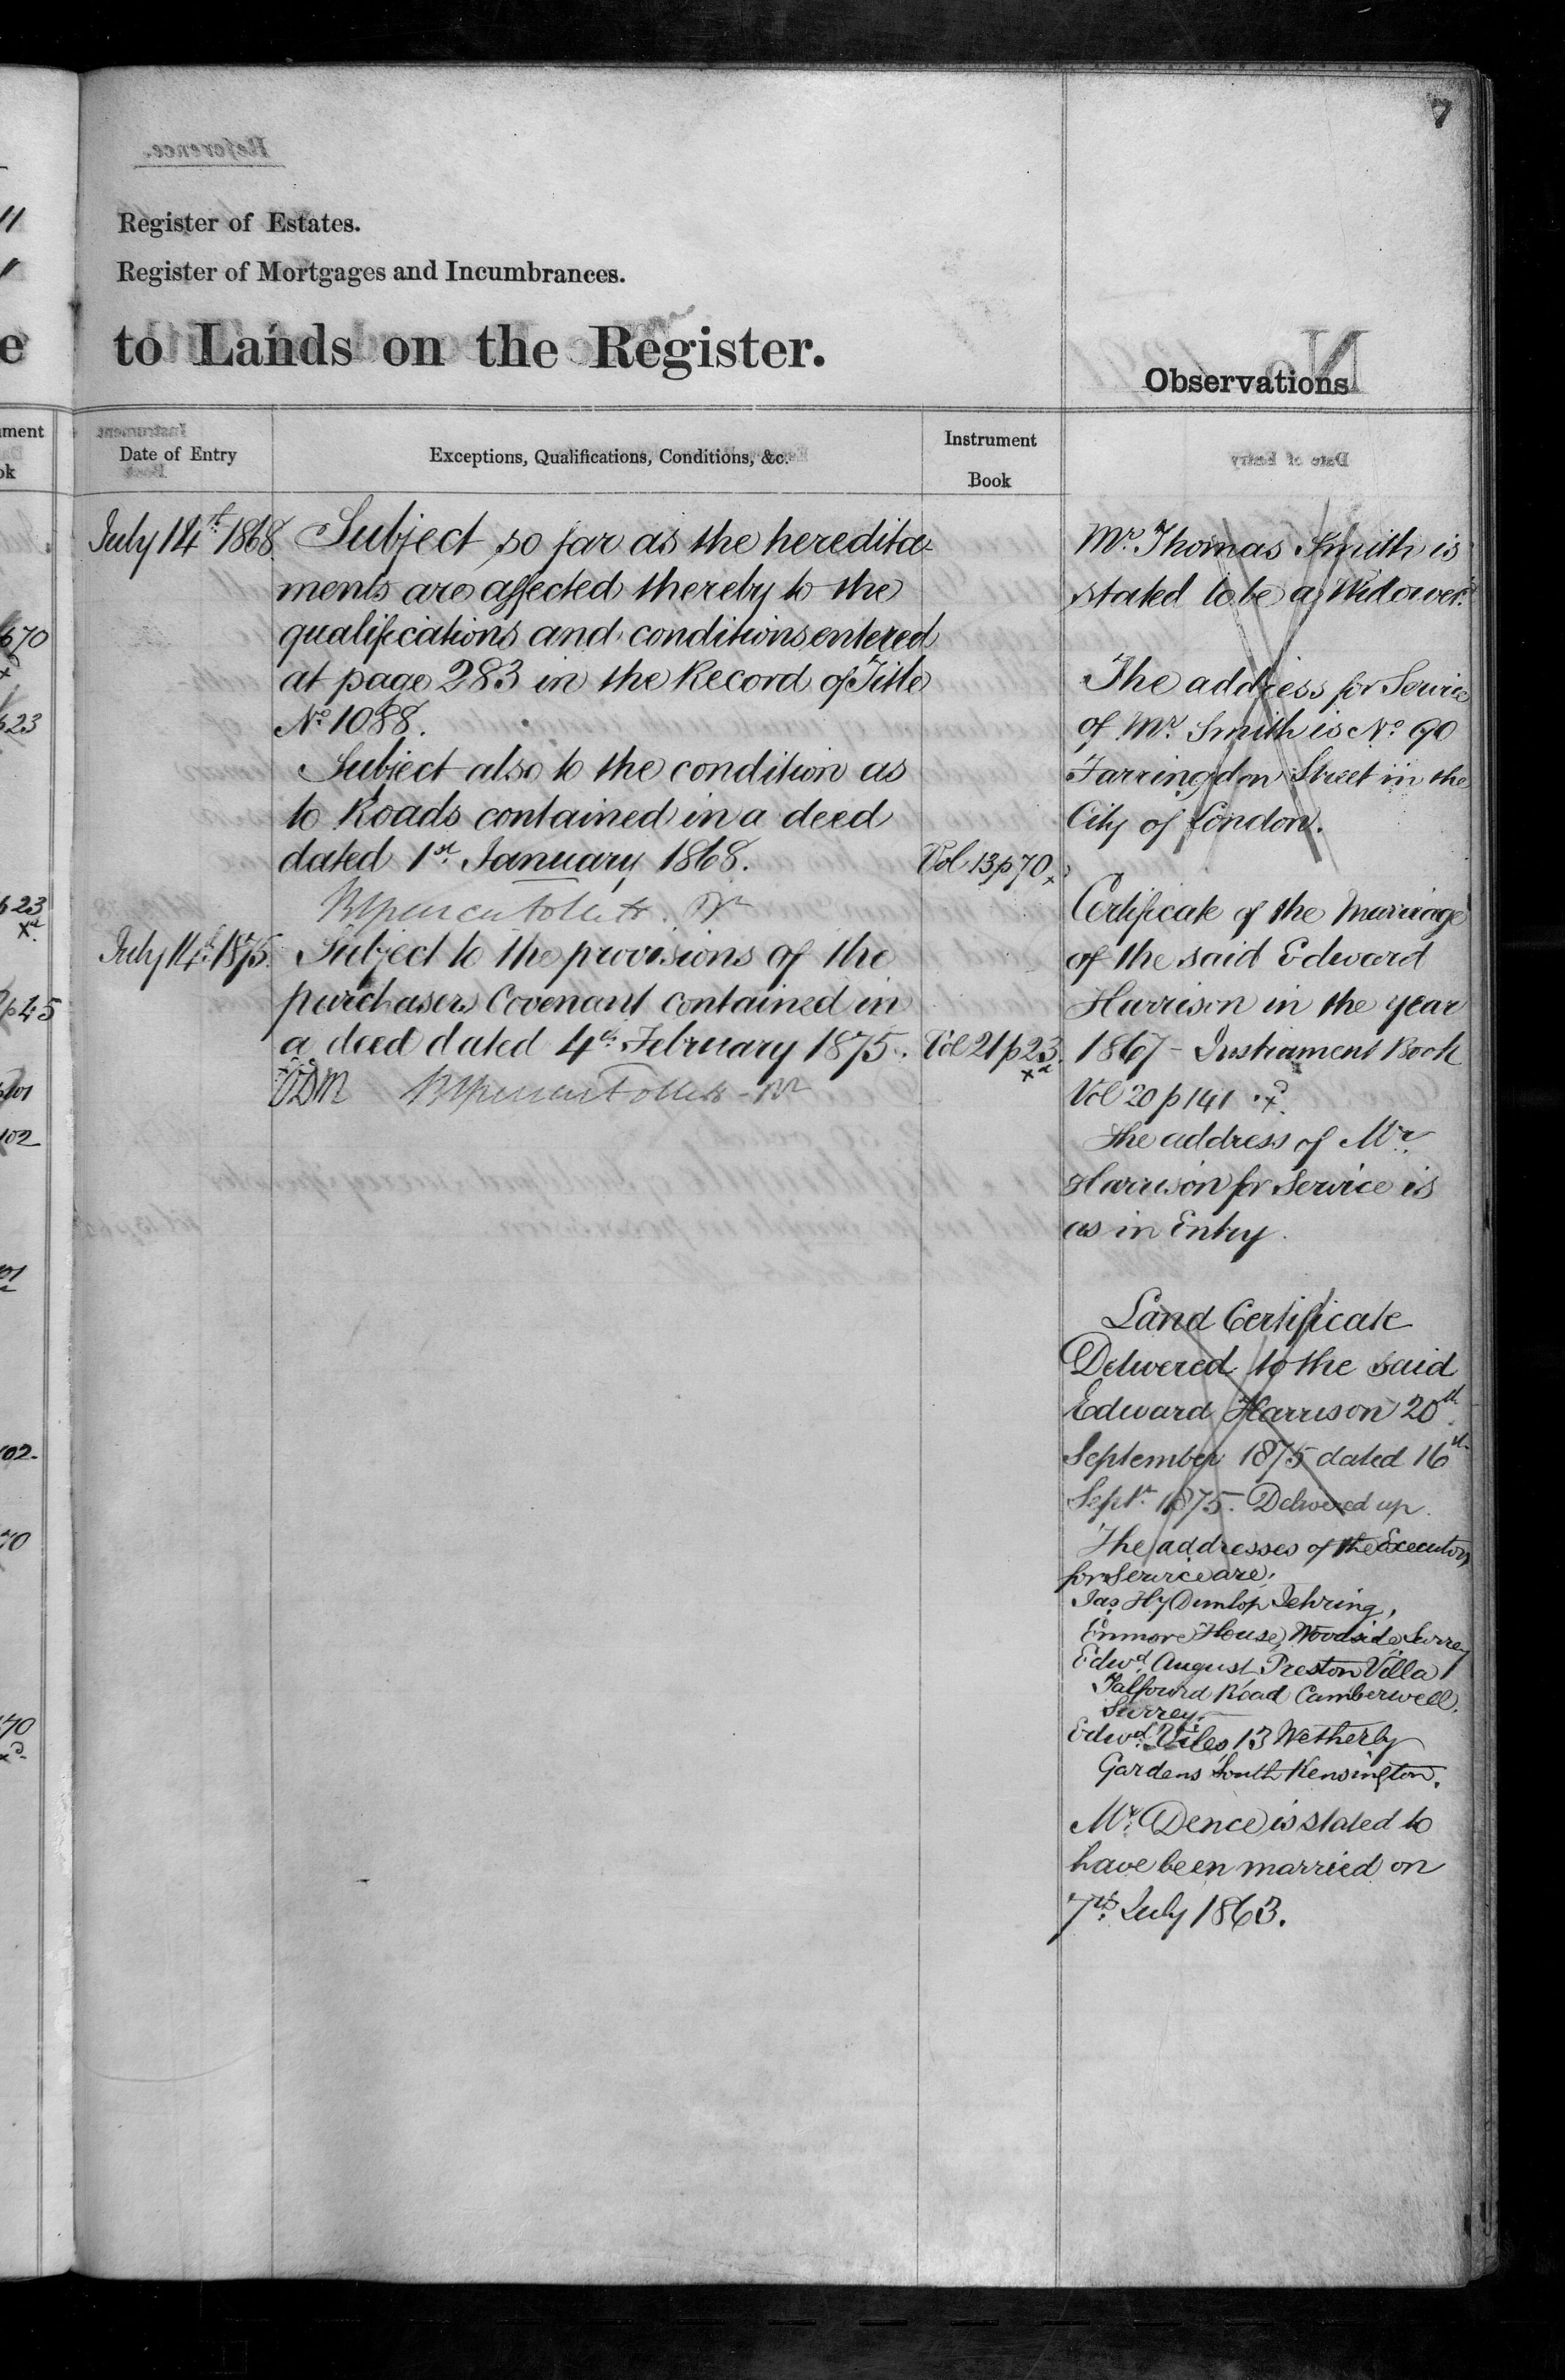 7
Register of Estates.
Register of Mortgages and Incumbrances.
to Lands on the Register.
Observations
Date of Entry
Exceptions, Qualifications, Conditions, &c.
Instrument
Book
July 14th 1868. Subject so far as the heredita-
ments are affected thereby to the
qualifications and conditions entered
at page 283 in the Record of Title
No. 1088.
Subject also to the condition as
to Roads contained in a deed
dated 1st January 1868. Vol 13 p 70
July 14th 1875. Subject to the provisions of the
purchasers Covenant contained in
a deed dated 4th February 1875. Vol 21 p 23.
Mr. Thomas Smith is
stated to be a Widower.
The address for Service
of Mr. Smith is No. 90
Farringdon Street in the
City of London.
Certificate of the Marriage
of the said Edward
Harrison in the year
1867 - Instrument Book
Vol 20 p 141
The address of Mr.
Harrison for Service is
as in Entry.
Land Certificate
Delivered to the said
Edward Harrison 20th
September 1875 dated 16th
Septr. 1875. Delivered up.
The addresses of the Executors
for Service are:
Jas. Hy Dunlop
Enmore House, Woodside, Surrey
Edwd. August Preston Villa
Talfourd Road Camberwell,
Surrey.
Edwd. Viles, 13 Wetherby
Gardens South Kensington.
Mr. Dence is stated to
have been married on
7th July 1863.